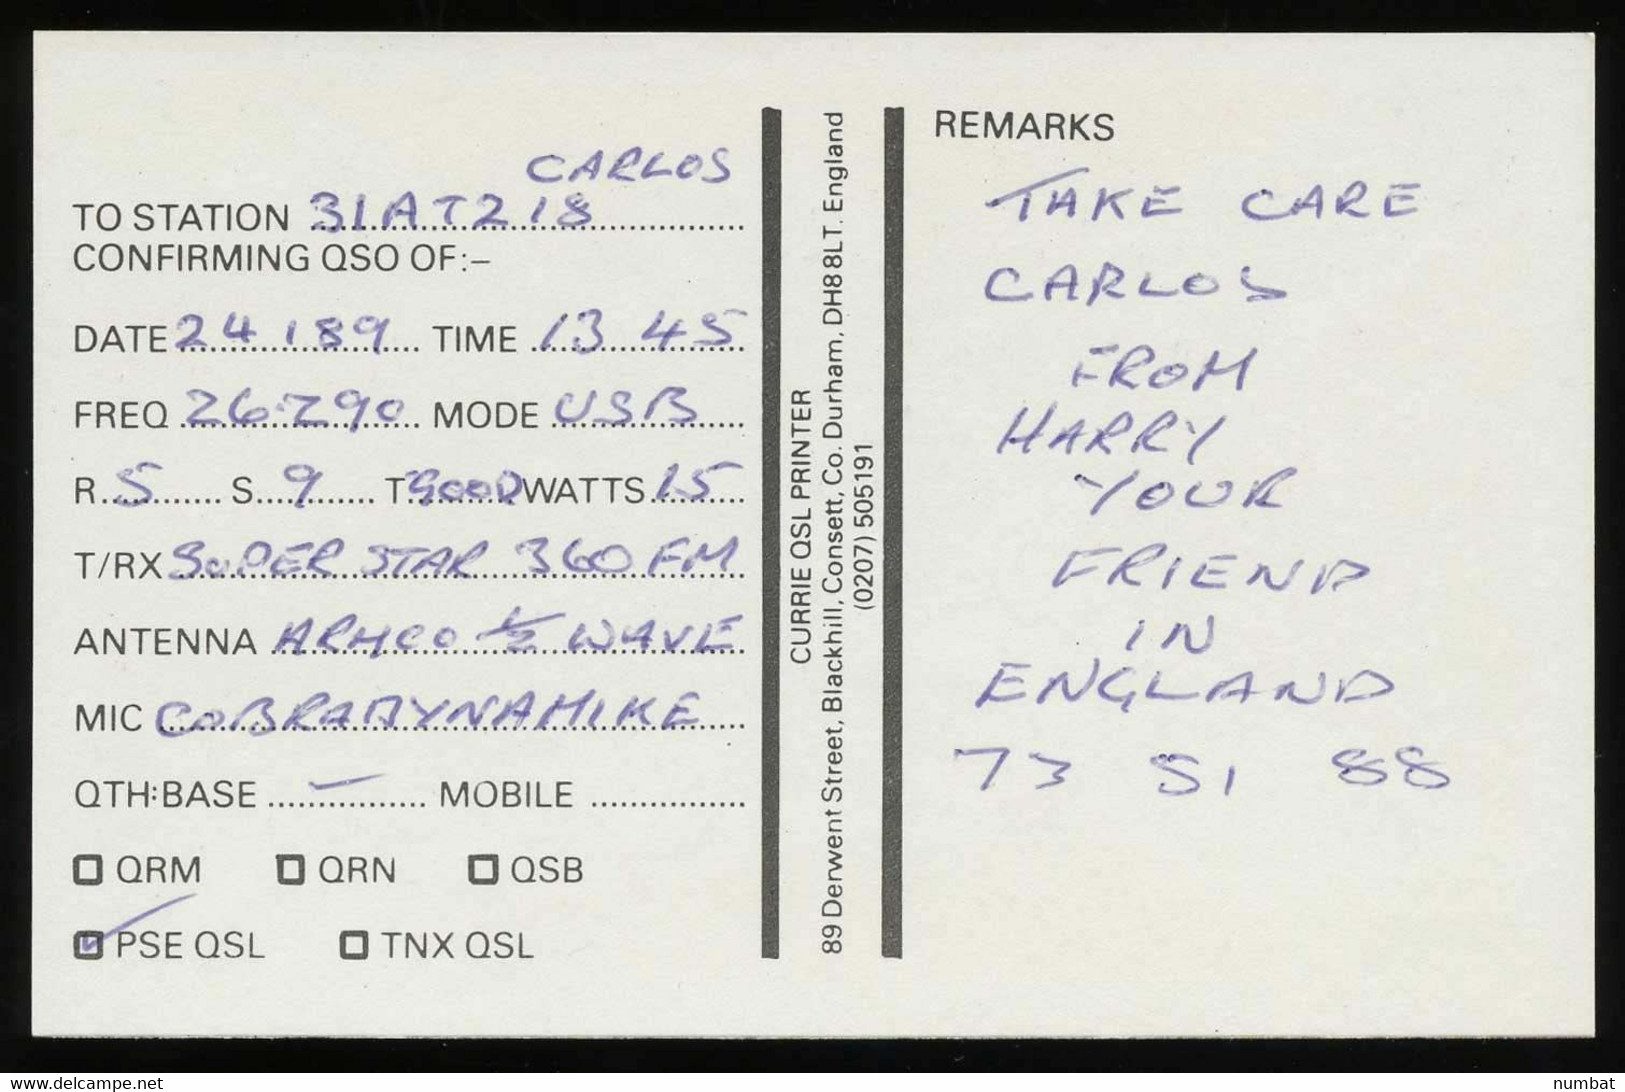 CARLOS
TO STATION 31AT218
CONFIRMING QSO OF:–
DATE 24 1 89 TIME 13 45
FREQ 26.290 MODE USB
R 5 S 9 T GOOD WATTS 15
T/RX SUPER STAR 360 FM
ANTENNA ARMCO 1/2 WAVE
MIC COBRA DYNAMIKE
QTH: BASE – MOBILE
QRM QRN QSB
PSE QSL TNX QSL
CURRIE QSL PRINTER
89 Derwent Street, Blackhill, Consett, Co. Durham, DH8 8LT. England
(0207) 505191
REMARKS
TAKE CARE
CARLOS
FROM
HARRY
YOUR
FRIEND
IN
ENGLAND
73 51 88
www.delcampe.net
numbat